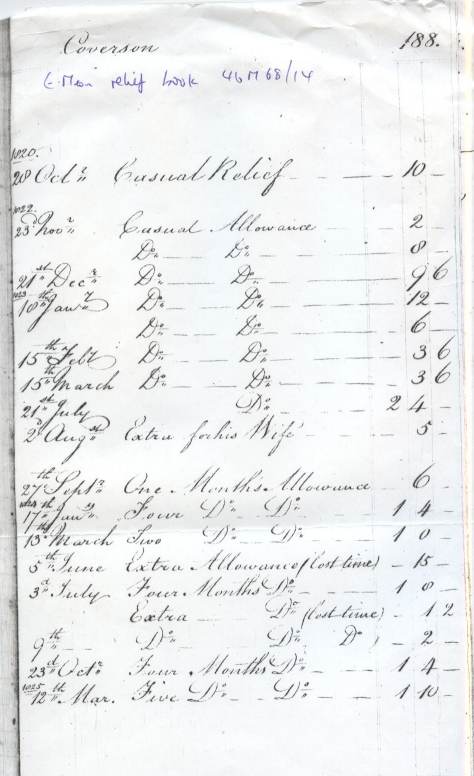 Coverson 188.
E. Meon relief book 46 M 68/14
1820.
28 Octr Casual Relief - 10 -
1822.
23d Novr Casual Allowance - 2 -
Do Do - 8 -
21st Decr Do Do - 9 6
1823
10th Janry Do Do - 12 -
Do Do - 6 -
15th Feby Do Do - 3 6
15th March Do Do - 3 6
21st July Do - 2 4 -
2d Augst Extra for his Wife - 5 -
27th Septr One Months Allowance 6 -
1824
17th Jany Four Do Do 1 4 -
13th March Two Do Do 1 0 -
5th June Extra Allowance (lost time) - 15 -
3d July Four Months Do 1 8 -
Extra Do (lost time) - 1 2
9th Do Do Do - 2 -
23d Octr Four Months Do 1 4 -
1825
12th Mar. Five Do Do 1 10 -